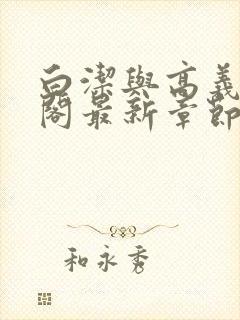 白潔與高義
閣最新章節
和永秀